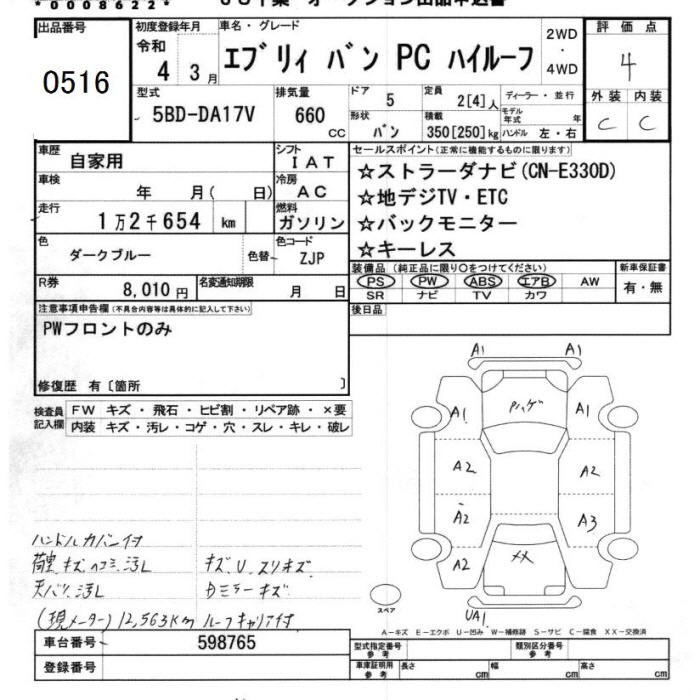 *0008622*
出品番号
0516
初度登録年月
令和
4 3月
車名・グレード
エブリィ バン PC ハイルーフ
2WD
・
4WD
評価点
4
外装 内装
C C
型式
5BD-DA17V
排気量
660 CC
ドア
5
定員
2[4]人
ディーラー・並行
形状
バン
積載
350[250]kg
モデル年式 年
ハンドル 左・右
車歴
自家用
シフト
IAT
車検
年 月( 日)
冷房
AC
走行
1万2千654 km
燃料
ガソリン
色
ダークブルー
色替
色コード
ZJP
R券
8,010円
名変通知期限
月 日
セールスポイント(正常に機能するものに限ります)
☆ストラーダナビ(CN-E330D)
☆地デジTV・ETC
☆バックモニター
☆キーレス
装備品(純正品に限り○をつけてください)
PS PW ABS エアB AW
SR ナビ TV カワ
新車保証書
有・無
後日品
注意事項申告欄(不具合内容等は具体的に記入して下さい)
PWフロントのみ
修復歴 有〔箇所 〕
検査員記入欄
FW キズ・飛石・ヒビ割・リペア跡・×要
内装 キズ・汚レ・コゲ・穴・スレ・キレ・破レ
ハンドルカバー付
荷室キズ、ヘコミ、汚レ キズU.スリキズ
天バリ汚レ Dミラーキズ
(現メーター)12,563Km ルーフキャリア付
A1 A1
A1 Pハゲ A1
A2 A2
A2 A3
A2 XX
UA1
スペア
A-キズ E-エクボ U-凹み W-補修跡 S-サビ C-腐食 XX-交換済
車台番号
598765
登録番号
型式指定番号
参考
類別区分番号
参考
車庫証明用
参考
長さ cm 幅 cm 高さ cm